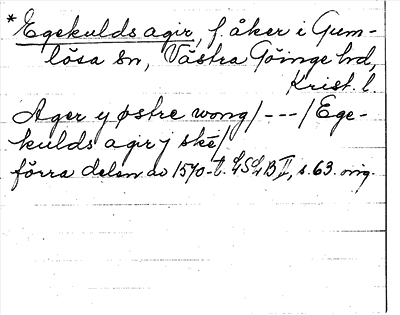 *Egekulds agir, f. åker i Gum-
lösa sn, Västra Göinge hd,
Krist. l.
Ager y østre wong/---/Ege-
kulds agir j ske/
förra delen av 1570-t. LSLB II, s. 63. orig.